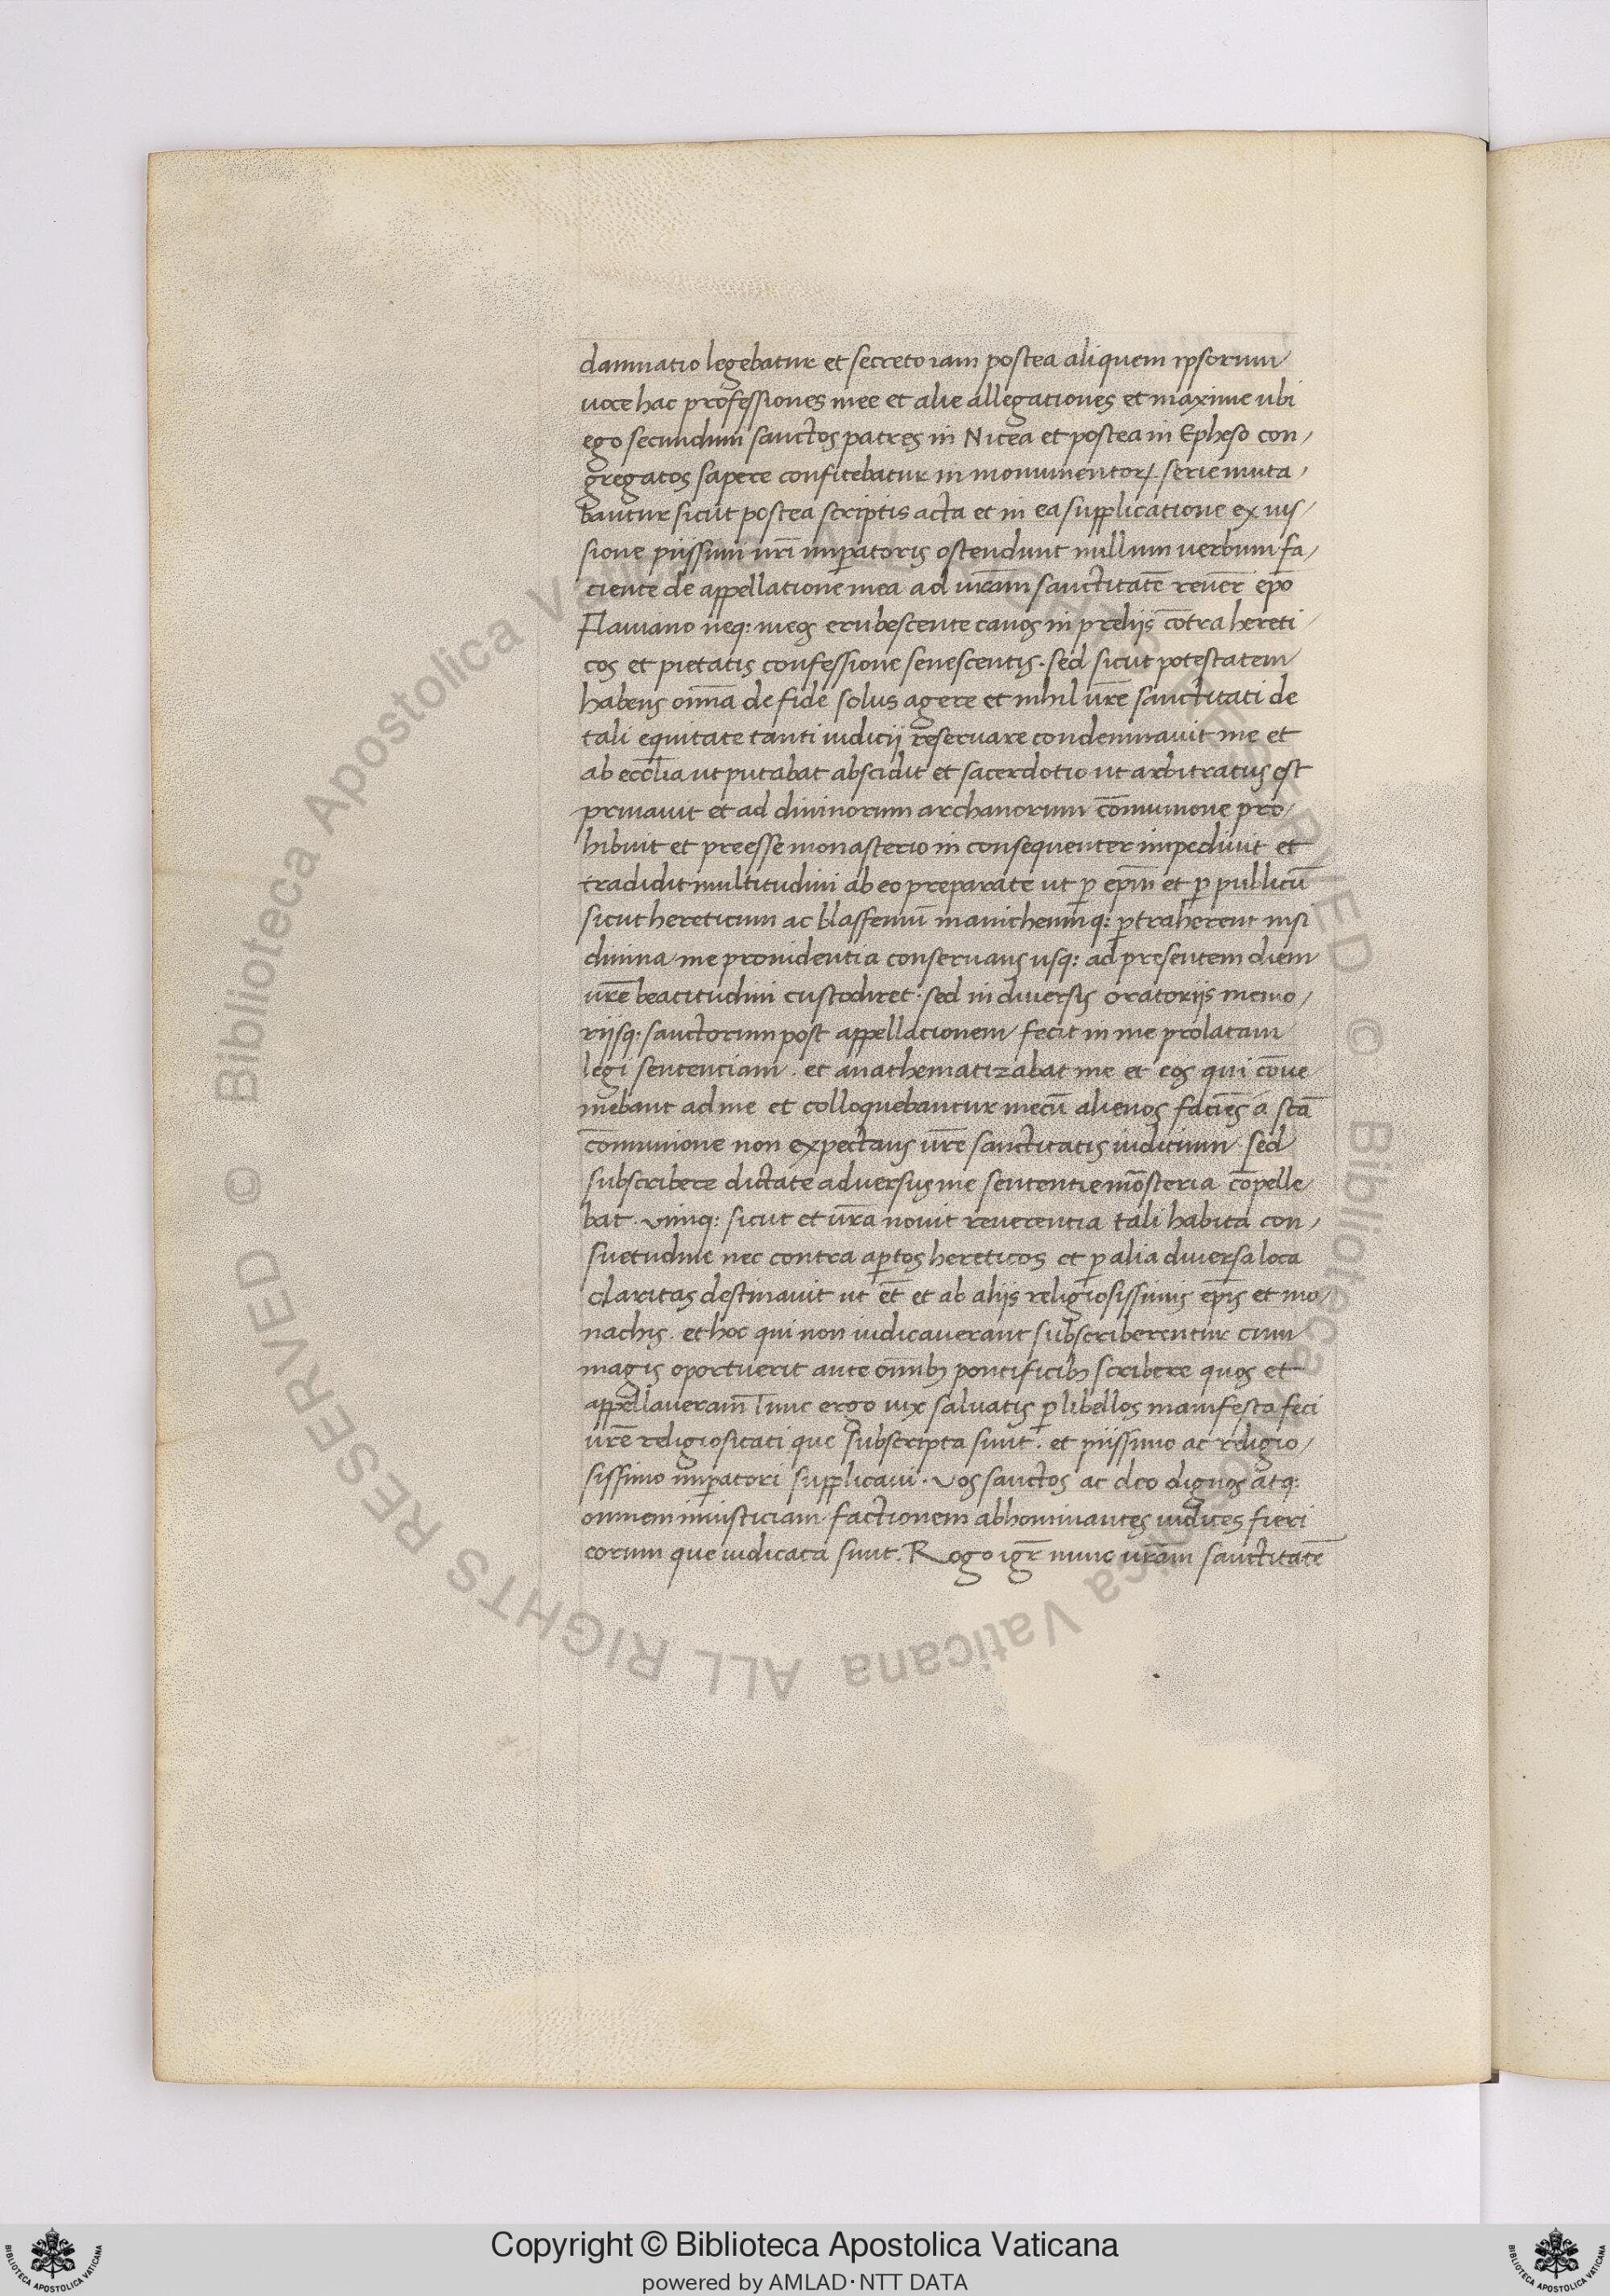 damnatio legebatur et secreto iam postea aliquem ipsorum
uoce hac professiones mee et alie allegationes et maxime ubi
ego secundum sanctos patres in Nicea et postea in Epheso con,
gregatos sapere confitebatur in monumentoꝝ serie muta,
bantur sicut postea scriptis acta et in ea supplicatione ex uis,
sione piissimi nr̄i imꝑatoris ostendunt nullum uerbum fa,
ciente de appellatione mea ad ur̄am sanctitatē reuer̄ ep̄o
Flauiano neq: meos erubescente canos in preliis cōtra hereti,
cos et pietatis confessione senescentis. sed sicut potestatem
habens om̄ia de fide solus agere et nihil ur̄e sanctitati de
tali equitate tanti iudicij reseruare condemnauit me et
ab eccl̄ia ut putabat abscidit et sacerdotio ut arbitratus est
priuauit et ad diuinorum archanorum cōmunione pro,
hibuit et preesse monasterio in consequenter impediuit et
tradidit multitudini ab eo preparate ut ꝑ ep̄m et ꝑ publicū
sicut hereticum ac blasfemū manicheumq: ꝑtraherent nisi
diuina me prouidentia conseruans usq: ad presentem diem
ur̄e beatitudini custodiret. sed in diuersis oratorijs memo,
rijsq. sanctorum post appellationem fecit in me prolatam
legi sententiam. et anathematizabat me et eos qui cōue
niebant ad me et colloquebantur mecū alienos faciēs a sc̄a
cōmunione non expectans ur̄e sanctitatis iudicium. sed
subscribere dictate aduersus me sententie mōsteria cōpelle
bat. uniq: sicut et ur̄a nouit reuerentia tali habita con,
suetudine nec contra aꝑtos hereticos et ꝑ alia diuersa loca
claritas destinauit ut et̄ et ab alijs religiosissimis ep̄is et mo,
nachis. et hoc qui non iudicauerant subscriberentur cum
magis oportuerit ante om̄ibꝫ pontificibꝫ scribere quos et
appellaueram Tunc ergo uix saluatis ꝑ libellos manifesta feci
ur̄e religiositati que subscripta sunt. et piissimo ac religio,
sissimo imꝑatori supplicaui. Vos sanctos ac deo dignos atq:
omnem iniusticiam factionem abhominantes iudices fieri
eorum que iudicata sunt. Rogo igr̄ nunc ur̄am sanctitatē
Copyright © Biblioteca Apostolica Vaticana
powered by AMLAD·NTT DATA
© Biblioteca Apostolica Vaticana ALL RIGHTS RESERVED
© Biblioteca Apostolica Vaticana ALL RIGHTS RESERVED
BIBLIOTECA APOSTOLICA VATICANA
BIBLIOTECA APOSTOLICA VATICANA